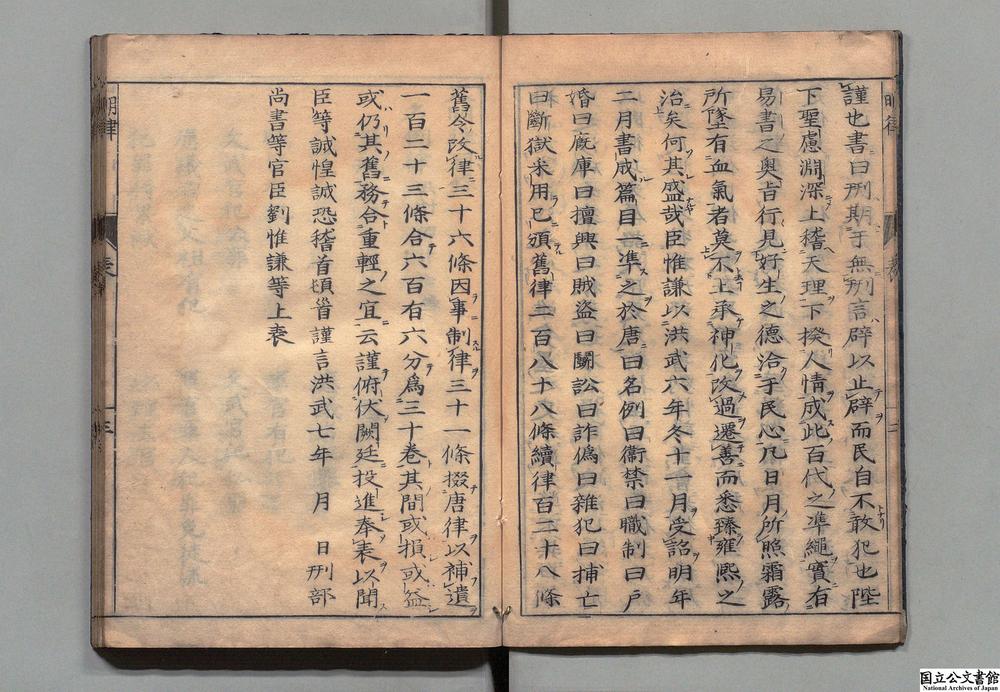 謹也書曰刑期于無刑言辟以止辟而民自不敢犯也陛
下聖慮淵深上稽天理下揆人情成此百代之凖繩實有
易書之奥旨行見好生之德洽于民心凡日月所照霜露
所墜有血氣者莫不上承神化改過遷善而悉臻雍熙之
治矣何其盛哉臣惟謙以洪武六年冬十一月受詔明年
二月書成篇目一凖之於唐曰名例曰衞禁曰職制曰戸
婚曰厩庫曰擅興曰賊盗曰鬭訟曰詐偽曰雜犯曰捕亡
曰斷獄采用已頒舊律二百八十八條續律百二十八條
舊令改律三十六條因事制律三十一條掇唐律以補遺
一百二十三條合六百有六分爲三十卷其間或損或益
或仍其舊務合重輕之宜云謹俯伏闕廷投進奉表以聞
臣等誠惶誠恐稽首頓首謹言洪武七年　月　日刑部
尚書等官臣劉惟謙等上表
明律
表
三
国立公文書館
National Archives of Japan